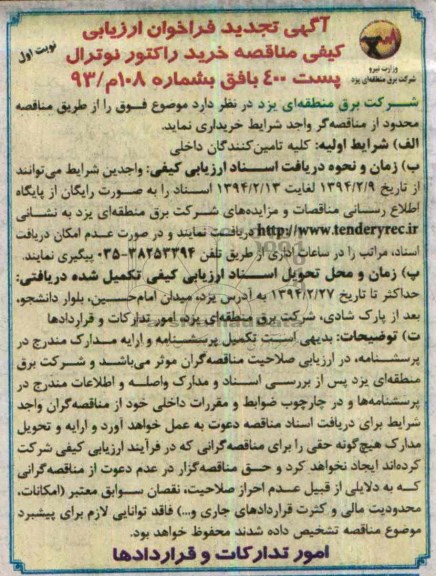 آگهی تجدید فراخوان ارزیابی
نوبت اول
کیفی مناقصه خرید راکتور نوترال
پست ۴۰۰ بافق بشماره ۱۰۸م/۹۳
وزارت نیرو
شرکت برق منطقه‌ای یزد
شرکت برق منطقه‌ای یزد در نظر دارد موضوع فوق را از طریق مناقصه
محدود از مناقصه‌گر واجد شرایط خریداری نماید.
الف) شرایط اولیه: کلیه تامین‌کنندگان داخلی
ب) زمان و نحوه دریافت اسناد ارزیابی کیفی: واجدین شرایط می‌توانند
از تاریخ ۱۳۹۴/۲/۹ لغایت ۱۳۹۴/۲/۱۳ اسناد را به صورت رایگان از پایگاه
اطلاع رسانی مناقصات و مزایده‌های شرکت برق منطقه‌ای یزد به نشانی
http://www.tenderyrec.ir دریافت نمایند و در صورت عدم امکان دریافت
اسناد، مراتب را در ساعات اداری از طریق تلفن ۳۸۲۵۳۳۹۴-۰۳۵ پیگیری نمایند.
پ) زمان و محل تحویل اسناد ارزیابی کیفی تکمیل شده دریافتی:
حداکثر تا تاریخ ۱۳۹۴/۲/۲۷ به آدرس یزد، میدان امام‌حسین، بلوار دانشجو،
بعد از پارک شادی، شرکت برق منطقه‌ای یزد، امور تدارکات و قراردادها
ت) توضیحات: بدیهی است تکمیل پرسشنامه و ارایه مدارک مندرج در
پرسشنامه، در ارزیابی صلاحیت مناقصه‌گران موثر می‌باشد و شرکت برق
منطقه‌ای یزد پس از بررسی اسناد و مدارک واصله و اطلاعات مندرج در
پرسشنامه‌ها و در چارچوب ضوابط و مقررات داخلی خود از مناقصه‌گران واجد
شرایط برای دریافت اسناد مناقصه دعوت به عمل خواهد آورد و ارایه و تحویل
مدارک هیچ‌گونه حقی را برای مناقصه‌گرانی که در فرآیند ارزیابی کیفی شرکت
کرده‌اند ایجاد نخواهد کرد و حق مناقصه‌گزار در عدم دعوت از مناقصه‌گرانی
که به دلایلی از قبیل عدم احراز صلاحیت، نقصان سوابق معتبر (امکانات،
محدودیت مالی و کثرت قراردادهای جاری و...) فاقد توانایی لازم برای پیشبرد
موضوع مناقصه تشخیص داده شدند محفوظ خواهد بود.
امور تدارکات و قراردادها